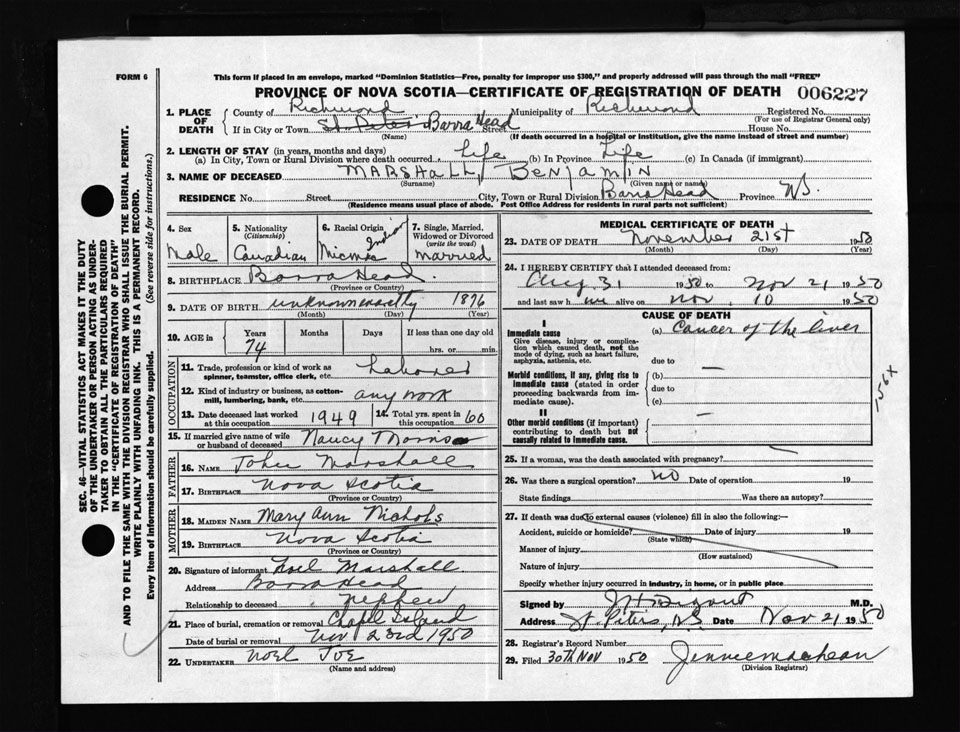 FORM 6
This form if placed in an envelope, marked "Dominion Statistics—Free, penalty for improper use $300," and properly addressed will pass through the mail "FREE"
PROVINCE OF NOVA SCOTIA—CERTIFICATE OF REGISTRATION OF DEATH 006227
1. PLACE OF DEATH County of Richmond Municipality of Richmond Registered No.
(For use of Registrar General only)
If in City or Town St. Peters Barra Head Street House No.
(Name) (If death occurred in a hospital or institution, give the name instead of street and number)
2. LENGTH OF STAY (in years, months and days)
(a) In City, Town or Rural Division where death occurred Life (b) In Province Life (c) In Canada (if immigrant)
3. NAME OF DECEASED MARSHALL, BENJAMIN
(Surname) (Given name or names)
RESIDENCE No. Street City, Town or Rural Division Barra Head Province N.S.
(Residence means usual place of abode. Post Office Address for residents in rural parts not sufficient)
4. Sex Male
5. Nationality (Citizenship) Canadian
6. Racial Origin Micmac Indian
7. Single, Married, Widowed or Divorced (write the word) Married
8. BIRTHPLACE Barra Head
(Province or Country)
9. DATE OF BIRTH unknown exactly 1876
(Month) (Day) (Year)
10. AGE in Years Months Days If less than one day old
74 hrs. or min.
OCCUPATION
11. Trade, profession or kind of work as spinner, teamster, office clerk, etc. Laborer
12. Kind of industry or business, as cotton-mill, lumbering, bank, etc. any work
13. Date deceased last worked at this occupation 1949 14. Total yrs. spent in 60
15. If married give name of wife or husband of deceased Nancy Morris
FATHER
16. NAME John Marshall
17. BIRTHPLACE Nova Scotia
(Province or Country)
MOTHER
18. MAIDEN NAME Mary Ann Nichols
19. BIRTHPLACE Nova Scotia
(Province or Country)
20. Signature of informant Noel Marshall
Address Barra Head
Relationship to deceased nephew
21. Place of burial, cremation or removal Chapel Island
Date of burial or removal Nov 23rd 1950
22. UNDERTAKER NOEL JOE
(Name and address)
MEDICAL CERTIFICATE OF DEATH
23. DATE OF DEATH November 21st 1950
(Month) (Day) (Year)
24. I HEREBY CERTIFY that I attended deceased from:
Aug 31 1950 to Nov 21 1950
and last saw h im alive on Nov. 10 1950
CAUSE OF DEATH
I
Immediate cause (a) Cancer of the liver
Give disease, injury or complication which caused death, not the mode of dying, such as heart failure, asphyxia, asthenia, etc.
due to
Morbid conditions, if any, giving rise to immediate cause (stated in order proceeding backwards from immediate cause). (b) —
due to
(c)
II
Other morbid conditions (if important) contributing to death but not causally related to immediate cause. —
156X
25. If a woman, was the death associated with pregnancy?
26. Was there a surgical operation? NO Date of operation 19
State findings Was there an autopsy?
27. If death was due to external causes (violence) fill in also the following:—
Accident, suicide or homicide? Date of injury 19
(State which)
Manner of injury
(How sustained)
Nature of injury
Specify whether injury occurred in industry, in home, or in public place
Signed by M.D.
Address St. Peters, N.S. Date Nov 21 1950
28. Registrar's Record Number
29. Filed 30th Nov 1950 Jennie MacLean
(Division Registrar)
SEC. 46—VITAL STATISTICS ACT MAKES IT THE DUTY
OF THE UNDERTAKER OR PERSON ACTING AS UNDER-
TAKER TO OBTAIN ALL THE PARTICULARS REQUIRED
IN THE "CERTIFICATE OF REGISTRATION OF DEATH"
AND TO FILE THE SAME WITH THE DIVISION REGISTRAR WHO SHALL ISSUE THE BURIAL PERMIT.
WRITE PLAINLY WITH UNFADING INK. THIS IS A PERMANENT RECORD.
Every item of information should be carefully supplied. (See reverse side for instructions.)